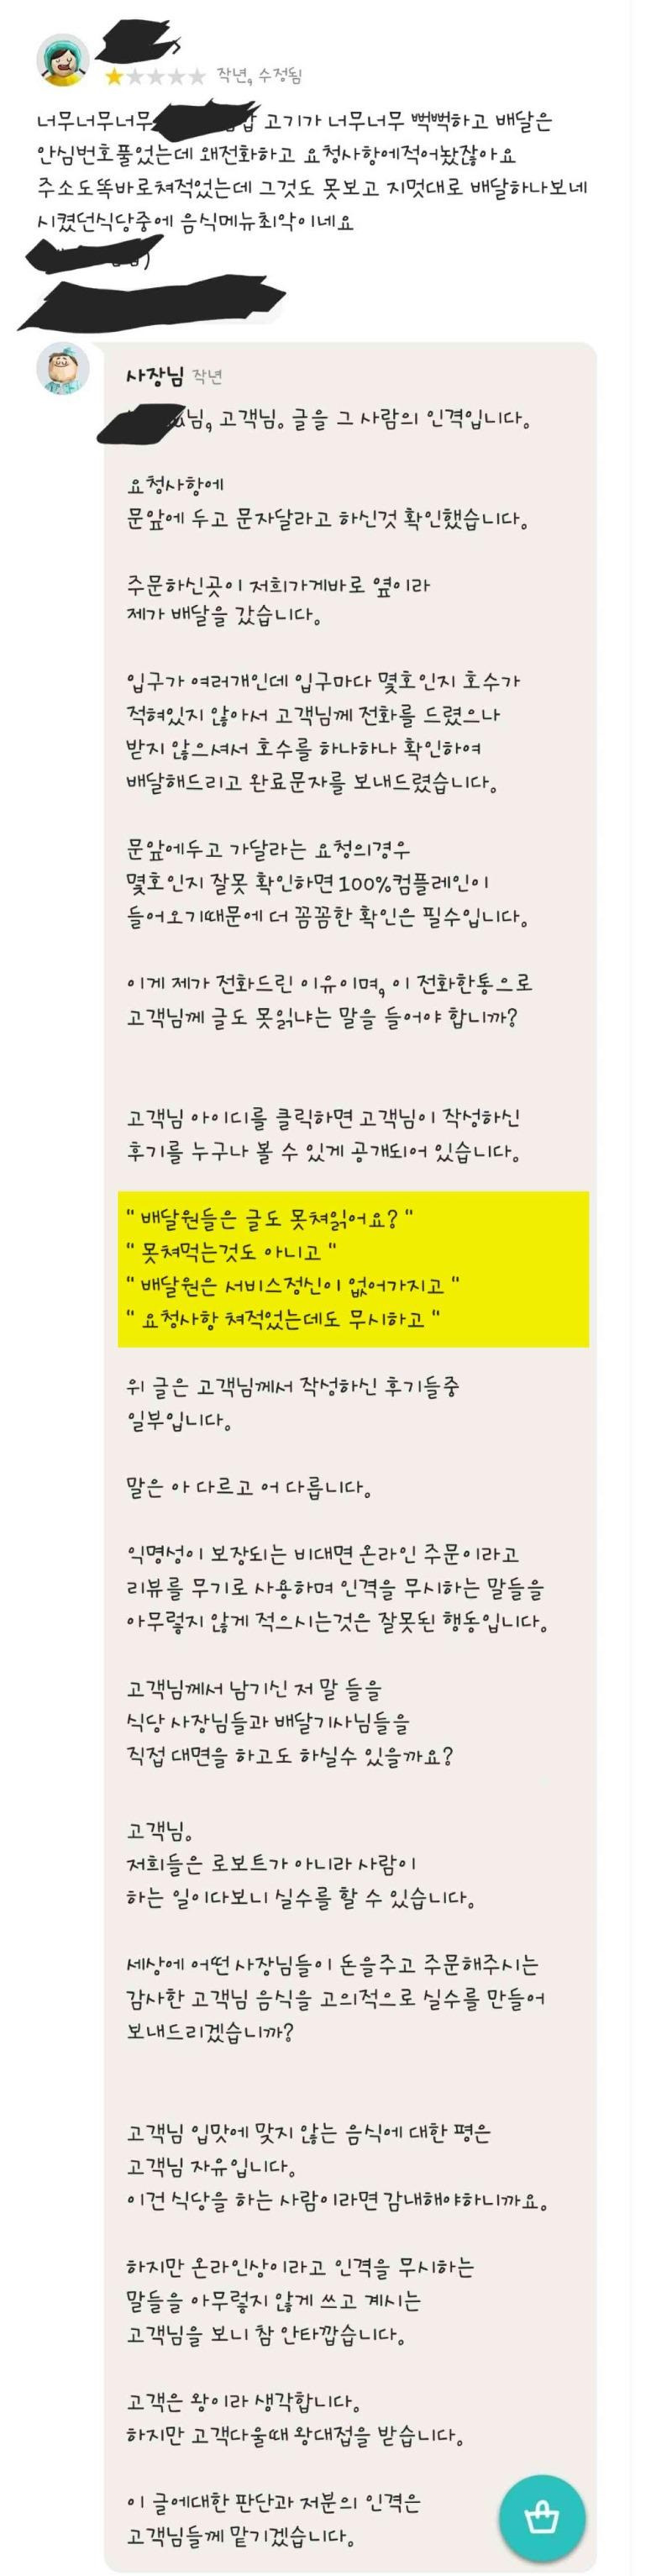 작년, 수정됨
너무너무너무 고기가 너무너무 뻑뻑하고 배달은
안심번호풀었는데 왜전화하고 요청사항에적어놨잖아요
주소도똑바로쳐적었는데 그것도 못보고 지멋대로 배달하나보네
시켰던식당중에 음식메뉴최악이네요
사장님 작년
님, 고객님. 글을 그 사람의 인격입니다.
요청사항에
문앞에 두고 문자달라고 하신것 확인했습니다.
주문하신곳이 저희가게바로 옆이라
제가 배달을 갔습니다.
입구가 여러개인데 입구마다 몇호인지 호수가
적혀있지 않아서 고객님께 전화를 드렸으나
받지 않으셔서 호수를 하나하나 확인하여
배달해드리고 완료문자를 보내드렸습니다.
문앞에두고 가달라는 요청의경우
몇호인지 잘못 확인하면 100%컴플레인이
들어오기때문에 더 꼼꼼한 확인은 필수입니다.
이게 제가 전화드린 이유이며, 이 전화한통으로
고객님께 글도 못읽냐는 말을 들어야 합니까?
고객님 아이디를 클릭하면 고객님이 작성하신
후기를 누구나 볼 수 있게 공개되어 있습니다.
" 배달원들은 글도 못쳐읽어요? "
" 못쳐먹는것도 아니고 "
" 배달원은 서비스정신이 없어가지고 "
" 요청사항 쳐적었는데도 무시하고 "
위 글은 고객님께서 작성하신 후기들중
일부입니다.
말은 아 다르고 어 다릅니다.
익명성이 보장되는 비대면 온라인 주문이라고
리뷰를 무기로 사용하며 인격을 무시하는 말들을
아무렇지 않게 적으시는것은 잘못된 행동입니다.
고객님께서 남기신 저 말 들을
식당 사장님들과 배달기사님들을
직접 대면을 하고도 하실수 있을까요?
고객님.
저희들은 로보트가 아니라 사람이
하는 일이다보니 실수를 할 수 있습니다.
세상에 어떤 사장님들이 돈을주고 주문해주시는
감사한 고객님 음식을 고의적으로 실수를 만들어
보내드리겠습니까?
고객님 입맛에 맞지 않는 음식에 대한 평은
고객님 자유입니다.
이건 식당을 하는 사람이라면 감내해야하니까요.
하지만 온라인상이라고 인격을 무시하는
말들을 아무렇지 않게 쓰고 계시는
고객님을 보니 참 안타깝습니다.
고객은 왕이라 생각합니다.
하지만 고객다울때 왕대접을 받습니다.
이 글에대한 판단과 저분의 인격은
고객님들께 맡기겠습니다.